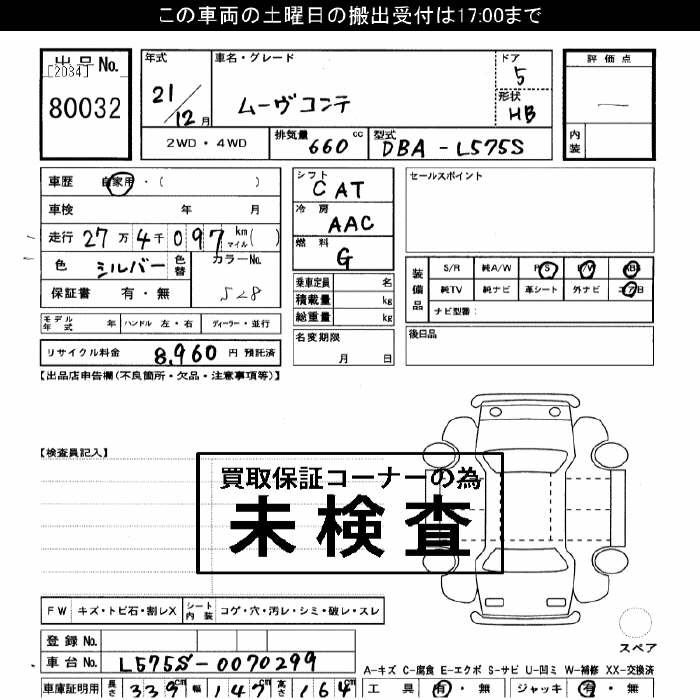 この車両の土曜日の搬出受付は17:00まで
出品No.
[2034]
80032
年式 21/12月
車名・グレード ムーヴコンテ
ドア 5
形状 HB
2WD・4WD
排気量 660 cc
型式 DBA-L575S
評価点
内装
車歴 自家用・( )
車検 年 月
走行 27万4千097 km マイル( )
色 シルバー 色替 カラーNo. S28
保証書 有・無
モデル年式 年 ハンドル 左・右 ディーラー・並行
リサイクル料金 8,960 円 預託済
シフト CAT
冷房 AAC
燃料 G
乗車定員 名
積載量 kg
総重量 kg
名変期限 月 日
セールスポイント
装備品
S/R 純A/W P/S P/W ABS
純TV 純ナビ 革シート 外ナビ エアB
ナビ型番:
後日品
【出品店申告欄(不良箇所・欠品・注意事項等)】
【検査員記入】
買取保証コーナーの為
未検査
FW キズ・トビ石・割レX シート内装 コゲ・穴・汚レ・シミ・破レ・スレ
スペア
登録No.
車台No. L575S-0070299
A-キズ C-腐食 E-エクボ S-サビ U-凹ミ W-補修 XX-交換済
車庫証明用 長さ 339cm 幅 147cm 高さ 164cm
工具 有・無 ジャッキ 有・無